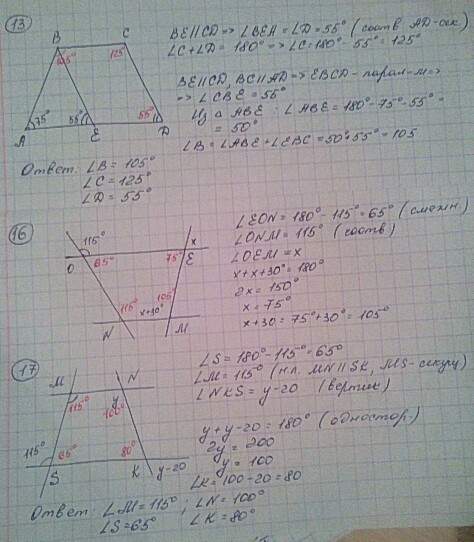 13
B
C
105°
125°
75°
55°
55°
A
E
D
BE||CD => ∠BEA = ∠D = 55° (соотв AD-сек)
∠C + ∠D = 180° => ∠C = 180° - 55° = 125°
BE||CD, BC||AD => EBCD - парал-м =>
=> ∠CBE = 55°
Из △ ABE : ∠ABE = 180° - 75° - 55° =
= 50°
∠B = ∠ABE + ∠EBC = 50° + 55° = 105
Ответ: ∠B = 105°
∠C = 125°
∠D = 55°
16
115°
x
O
65°
75°
E
115°
105°
x+30°
N
M
∠EON = 180° - 115° = 65° (смежн.)
∠ONM = 115° (соотв)
∠OEM = x
x + x + 30° = 180°
2x = 150°
x = 75°
x + 30 = 75° + 30° = 105°
17
M
N
115°
y
100°
115°
65°
80°
S
K
y-20
∠S = 180° - 115° = 65°
∠M = 115° (н.л. MN || SK, MS - секущ)
∠NKS = y-20 (вертик)
y + y - 20 = 180° (одностор.)
2y = 200
y = 100
∠K = 100 - 20 = 80
Ответ: ∠M = 115° ; ∠N = 100°
∠S = 65° ∠K = 80°